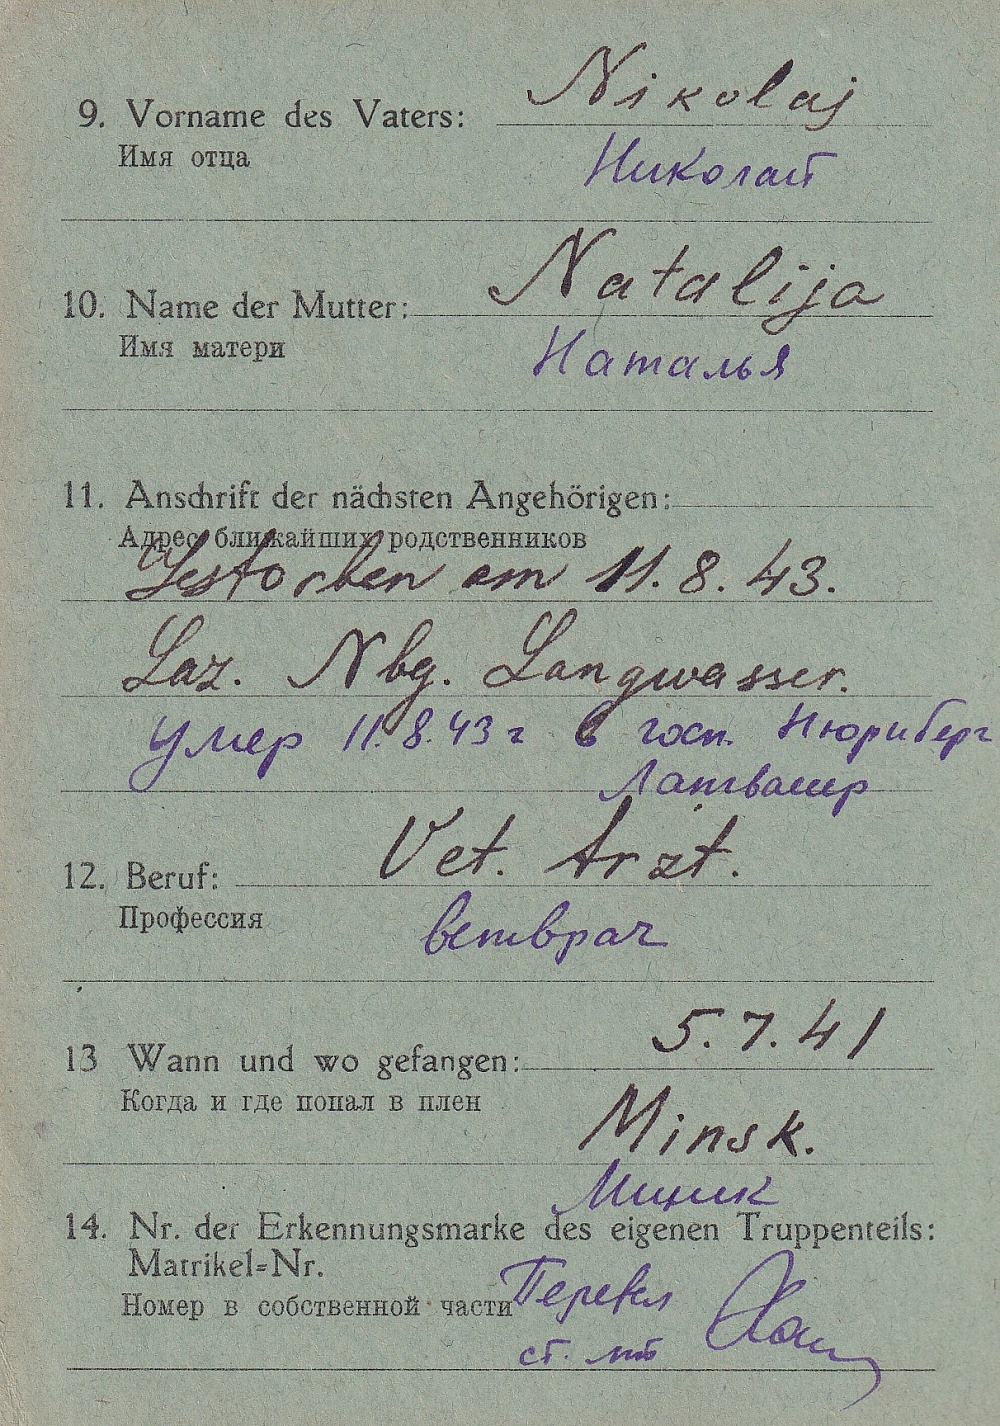 9. Vorname des Vaters: Nikolaj
Имя отца
Николай
10. Name der Mutter: Natalija
Имя матери
Наталья
11. Anschrift der nächsten Angehörigen:
Адрес ближайших родственников
Gestorben am 11.8.43.
Laz. Nbg. Langwasser.
умер 11.8.43 г в госп. Нюрнберг
12. Beruf: Vet. Arzt.
Профессия
ветврач
13 Wann und wo gefangen: 5.7.41
Когда и где попал в плен
Minsk.
14. Nr. der Erkennungsmarke des eigenen Truppenteils:
Matrikel=Nr.
Номер в собственной части
Перевел
ст.